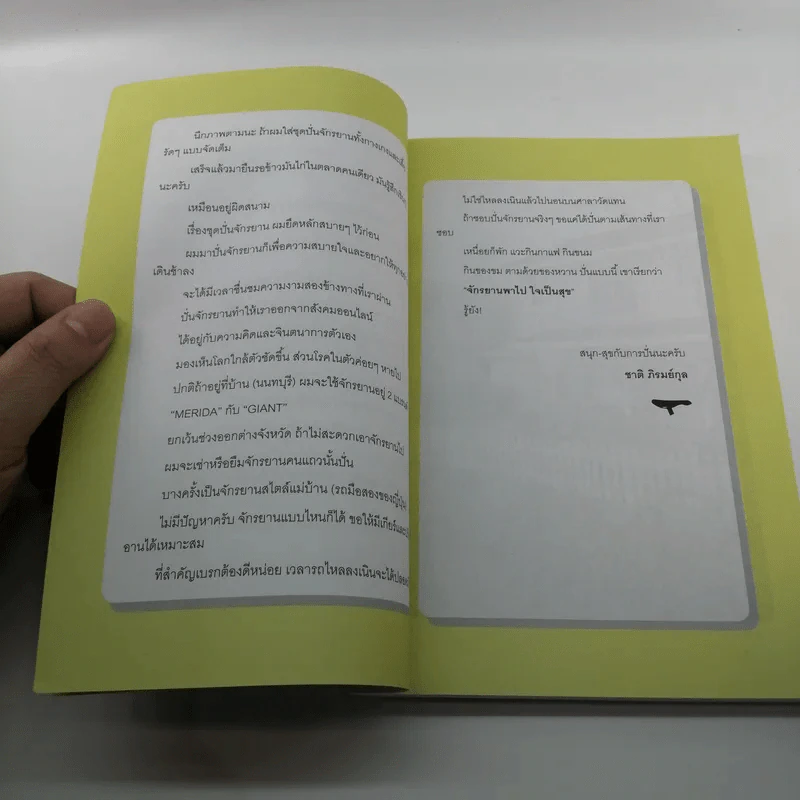 นึกภาพตามนะ ถ้าผมใส่ชุดปั่นจักรยานทั้งกางเกงและเสื้อ
รัดๆ แบบจัดเต็ม
เสร็จแล้วมายืนรอข้าวมันไก่ในตลาดคนเดียว มันรู้สึก
นะครับ
เหมือนอยู่ผิดสนาม
เรื่องชุดปั่นจักรยาน ผมยึดหลักสบายๆ ไว้ก่อน
ผมมาปั่นจักรยานก็เพื่อความสบายใจและอยากให้
เดินช้าลง
จะได้มีเวลาชื่นชมความงามสองข้างทางที่เราผ่าน
ปั่นจักรยานทำให้เราออกจากสังคมออนไลน์
ได้อยู่กับความคิดและจินตนาการตัวเอง
มองเห็นโลกใกล้ตัวชัดขึ้น ส่วนโรคในตัวค่อยๆ หายไป
ปกติถ้าอยู่ที่บ้าน (นนทบุรี) ผมจะใช้จักรยานอยู่ 2 แบรนด์
“MERIDA” กับ “GIANT”
ยกเว้นช่วงออกต่างจังหวัด ถ้าไม่สะดวกเอาจักรยานไป
ผมจะเช่าหรือยืมจักรยานคนแถวนั้นปั่น
บางครั้งเป็นจักรยานสไตล์แม่บ้าน (รถมือสองของญี่ปุ่น)
ไม่มีปัญหาครับ จักรยานแบบไหนก็ได้ ขอให้มีเกียร์และ
อานได้เหมาะสม
ที่สำคัญเบรกต้องดีหน่อย เวลารถไหลลงเนินจะได้ปลอด
ไม่ใช่ไหลลงเนินแล้วไปนอนบนศาลาวัดแทน
ถ้าชอบปั่นจักรยานจริงๆ ขอแค่ได้ปั่นตามเส้นทางที่เรา
ชอบ
เหนื่อยก็พัก แวะกินกาแฟ กินขนม
กินของขม ตามด้วยของหวาน ปั่นแบบนี้ เขาเรียกว่า
“จักรยานพาไป ใจเป็นสุข”
รู้ยัง!
สนุก-สุขกับการปั่นนะครับ
ชาติ ภิรมย์กุล